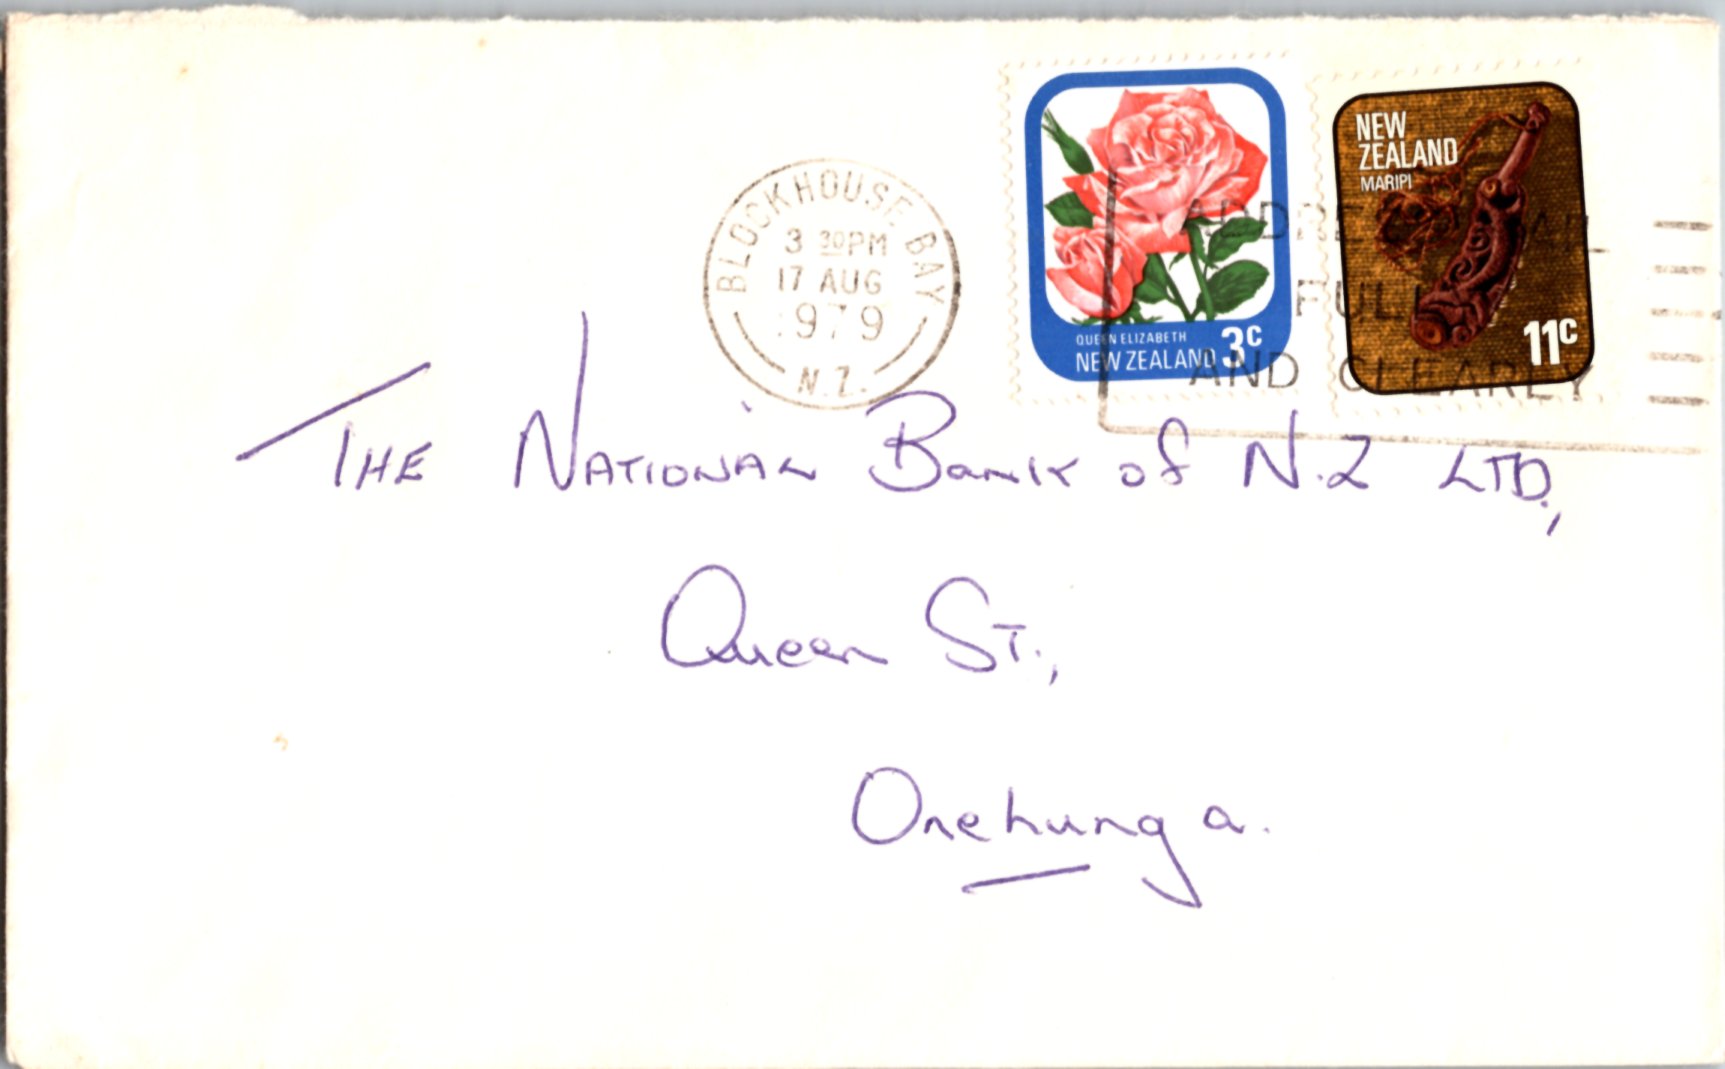 BLOCKHOUSE BAY
3 30PM
17 AUG
1979
N.Z.
QUEEN ELIZABETH
NEW ZEALAND 3c
NEW
ZEALAND
MARIPI
11c
ADDRESS MAIL
FULLY
AND CLEARLY
THE NATIONAL Bank of N.Z LTD.,
Queen St.,
Onehunga.